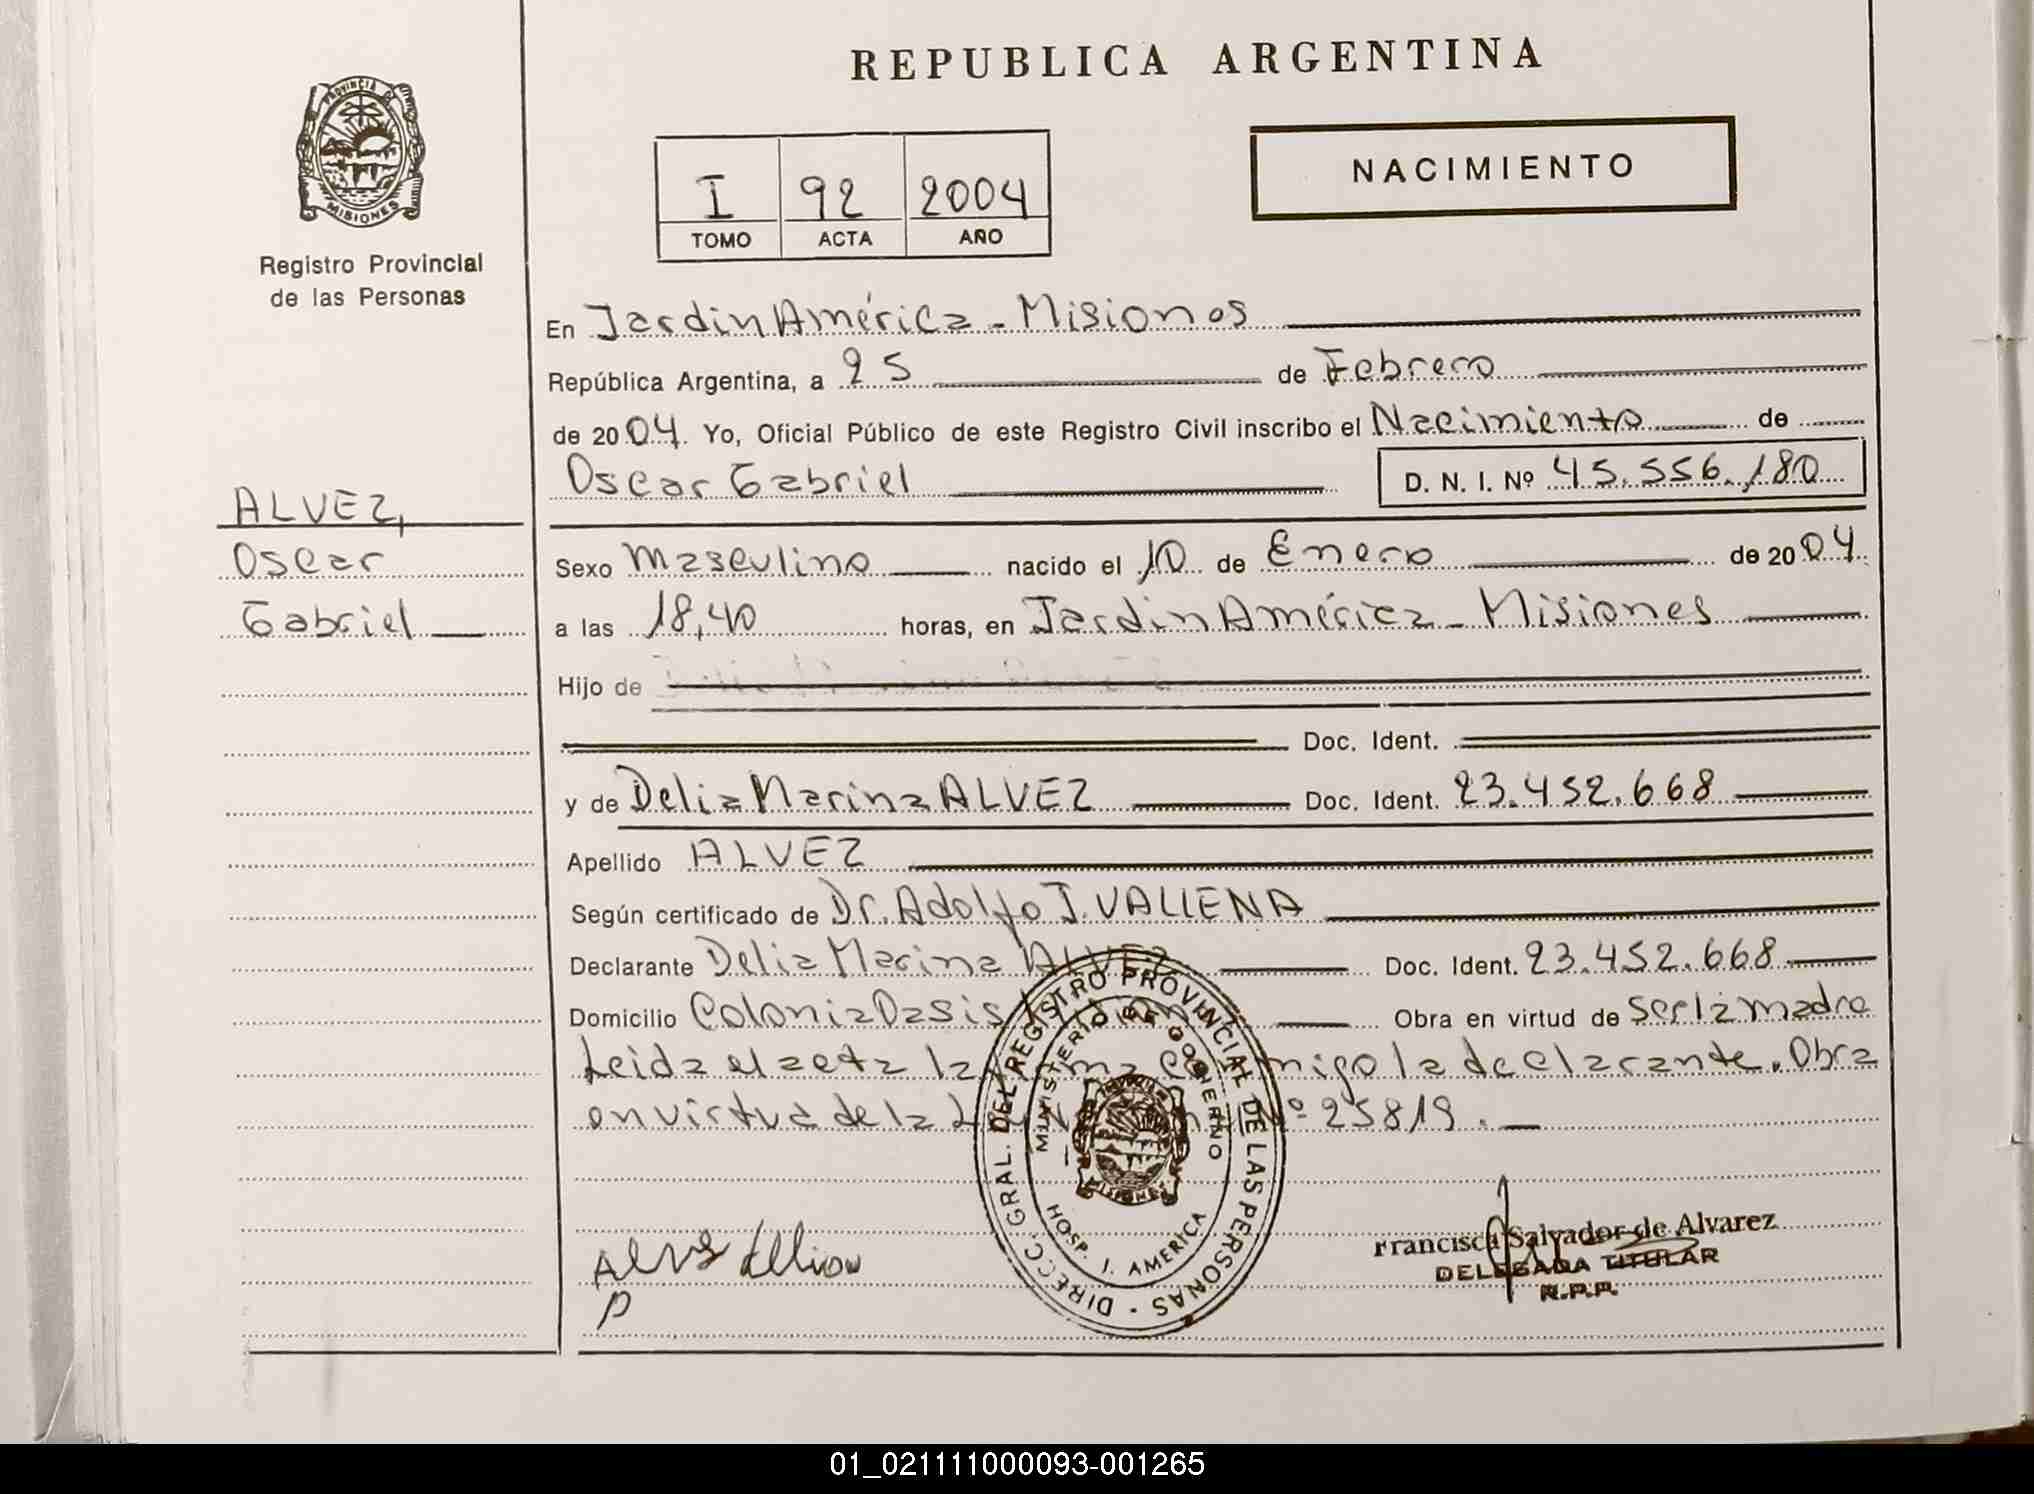 REPUBLICA ARGENTINA
NACIMIENTO
I 92 2004
TOMO ACTA AÑO
PROVINCIA DE
MISIONES
Registro Provincial
de las Personas
En Jardin América - Misiones
República Argentina, a 25 de Febrero
de 2004. Yo, Oficial Público de este Registro Civil inscribo el Nacimiento de
Oscar Gabriel D. N. I. Nº 45.556.180
ALVEZ,
Oscar
Gabriel
Sexo Masculino nacido el 10 de Enero de 2004.
a las 18,40 horas, en Jardin América - Misiones
Hijo de
Doc. Ident.
y de Delia Marina ALVEZ Doc. Ident. 23.452.668
Apellido ALVEZ
Según certificado de Dr. Adolfo J. VALLENA
Declarante Delia Marina ALVEZ Doc. Ident. 23.452.668
Domicilio Colonia Oasis Obra en virtud de ser la madre
Leida el acta la firma conmigo la declarante. Obra
en virtud de la Nº 25819.
DIRECC. GRAL. DEL REGISTRO PROVINCIAL DE LAS PERSONAS
MINISTERIO DE GOBIERNO
MISIONES
HOSP. J. AMERICA
Francisca Salvador de Alvarez
DELEGADA TITULAR
R.P.P.
01_021111000093-001265